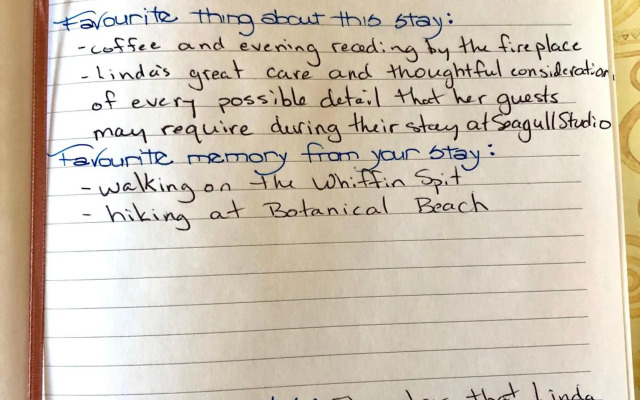 Favourite thing about this stay:
- coffee and evening reading by the fireplace
- Linda's great care and thoughtful consideration,
of every possible detail that her guests
may require during their stay at Seagull Studio
Favourite memory from your stay:
- walking on the Whiffin Spit
- hiking at Botanical Beach
that Linda